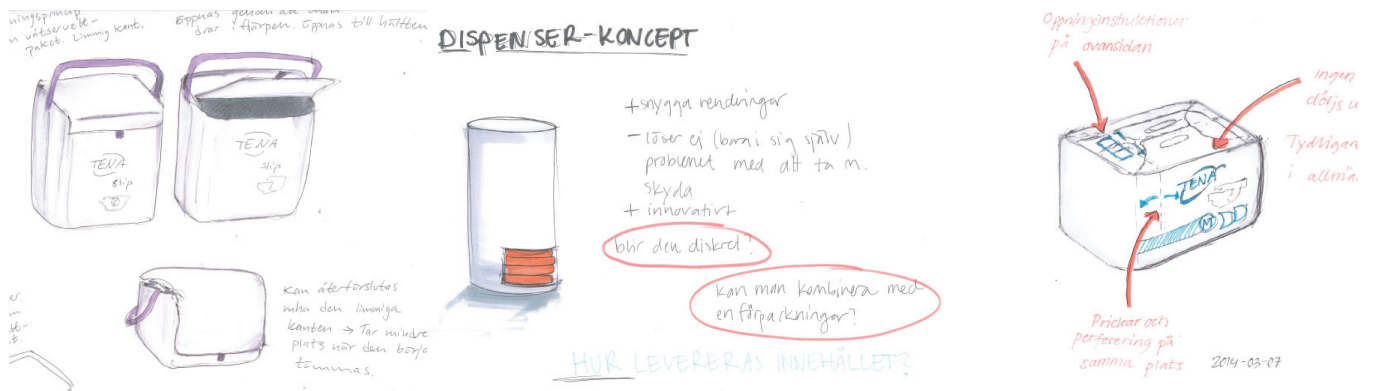 våtservett-
paket. Limmig kant.
öppnas genom att man
drar i flärpen. Öppnas till hälften
TENA
Slip
TENA
Slip
Kan återförslutas
mha den limmiga
kanten → Tar mindre
plats när den börja
tömmas.
DISPENSER-KONCEPT
+ snygga rendringar
- löser ej (bara i sig själv)
problemet med att ta m.
skydd
+ innovativt
blir den diskret?
kan man kombinera med
en förpackningar?
HUR LEVERERAS INNEHÅLLET?
Öppningsinstruktioner
på ovansidan
Ingen
döljs u
Tydligare
i allmä
TENA
M
Prickar och
perforering på
samma plats
2014-03-07